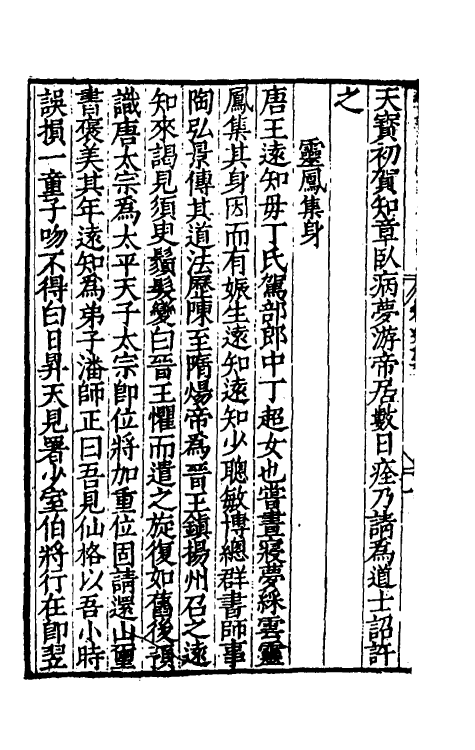 天寳初賀知章臥病夢游帝居數日痊乃請為道士詔許
之
靈鳳集身
唐王遠知毋丁氏駕部郎中丁超女也嘗晝寢夢綵雲靈
鳳集其身因而有娠生遠知遠知少聰敏博總群書師事
陶弘景傳其道法歷陳至隋煬帝為晉王鎮揚州召之遠
知來謁見須史鬚髮變白晉王懼而遣之旋復如舊後預
識唐太宗為太平天子太宗即位將加重位固請還山璽
書褒美其年遠知為弟子潘師正曰吾見仙格以吾小時
誤損一童子吻不得白日昇天見署少室伯將行在即翌